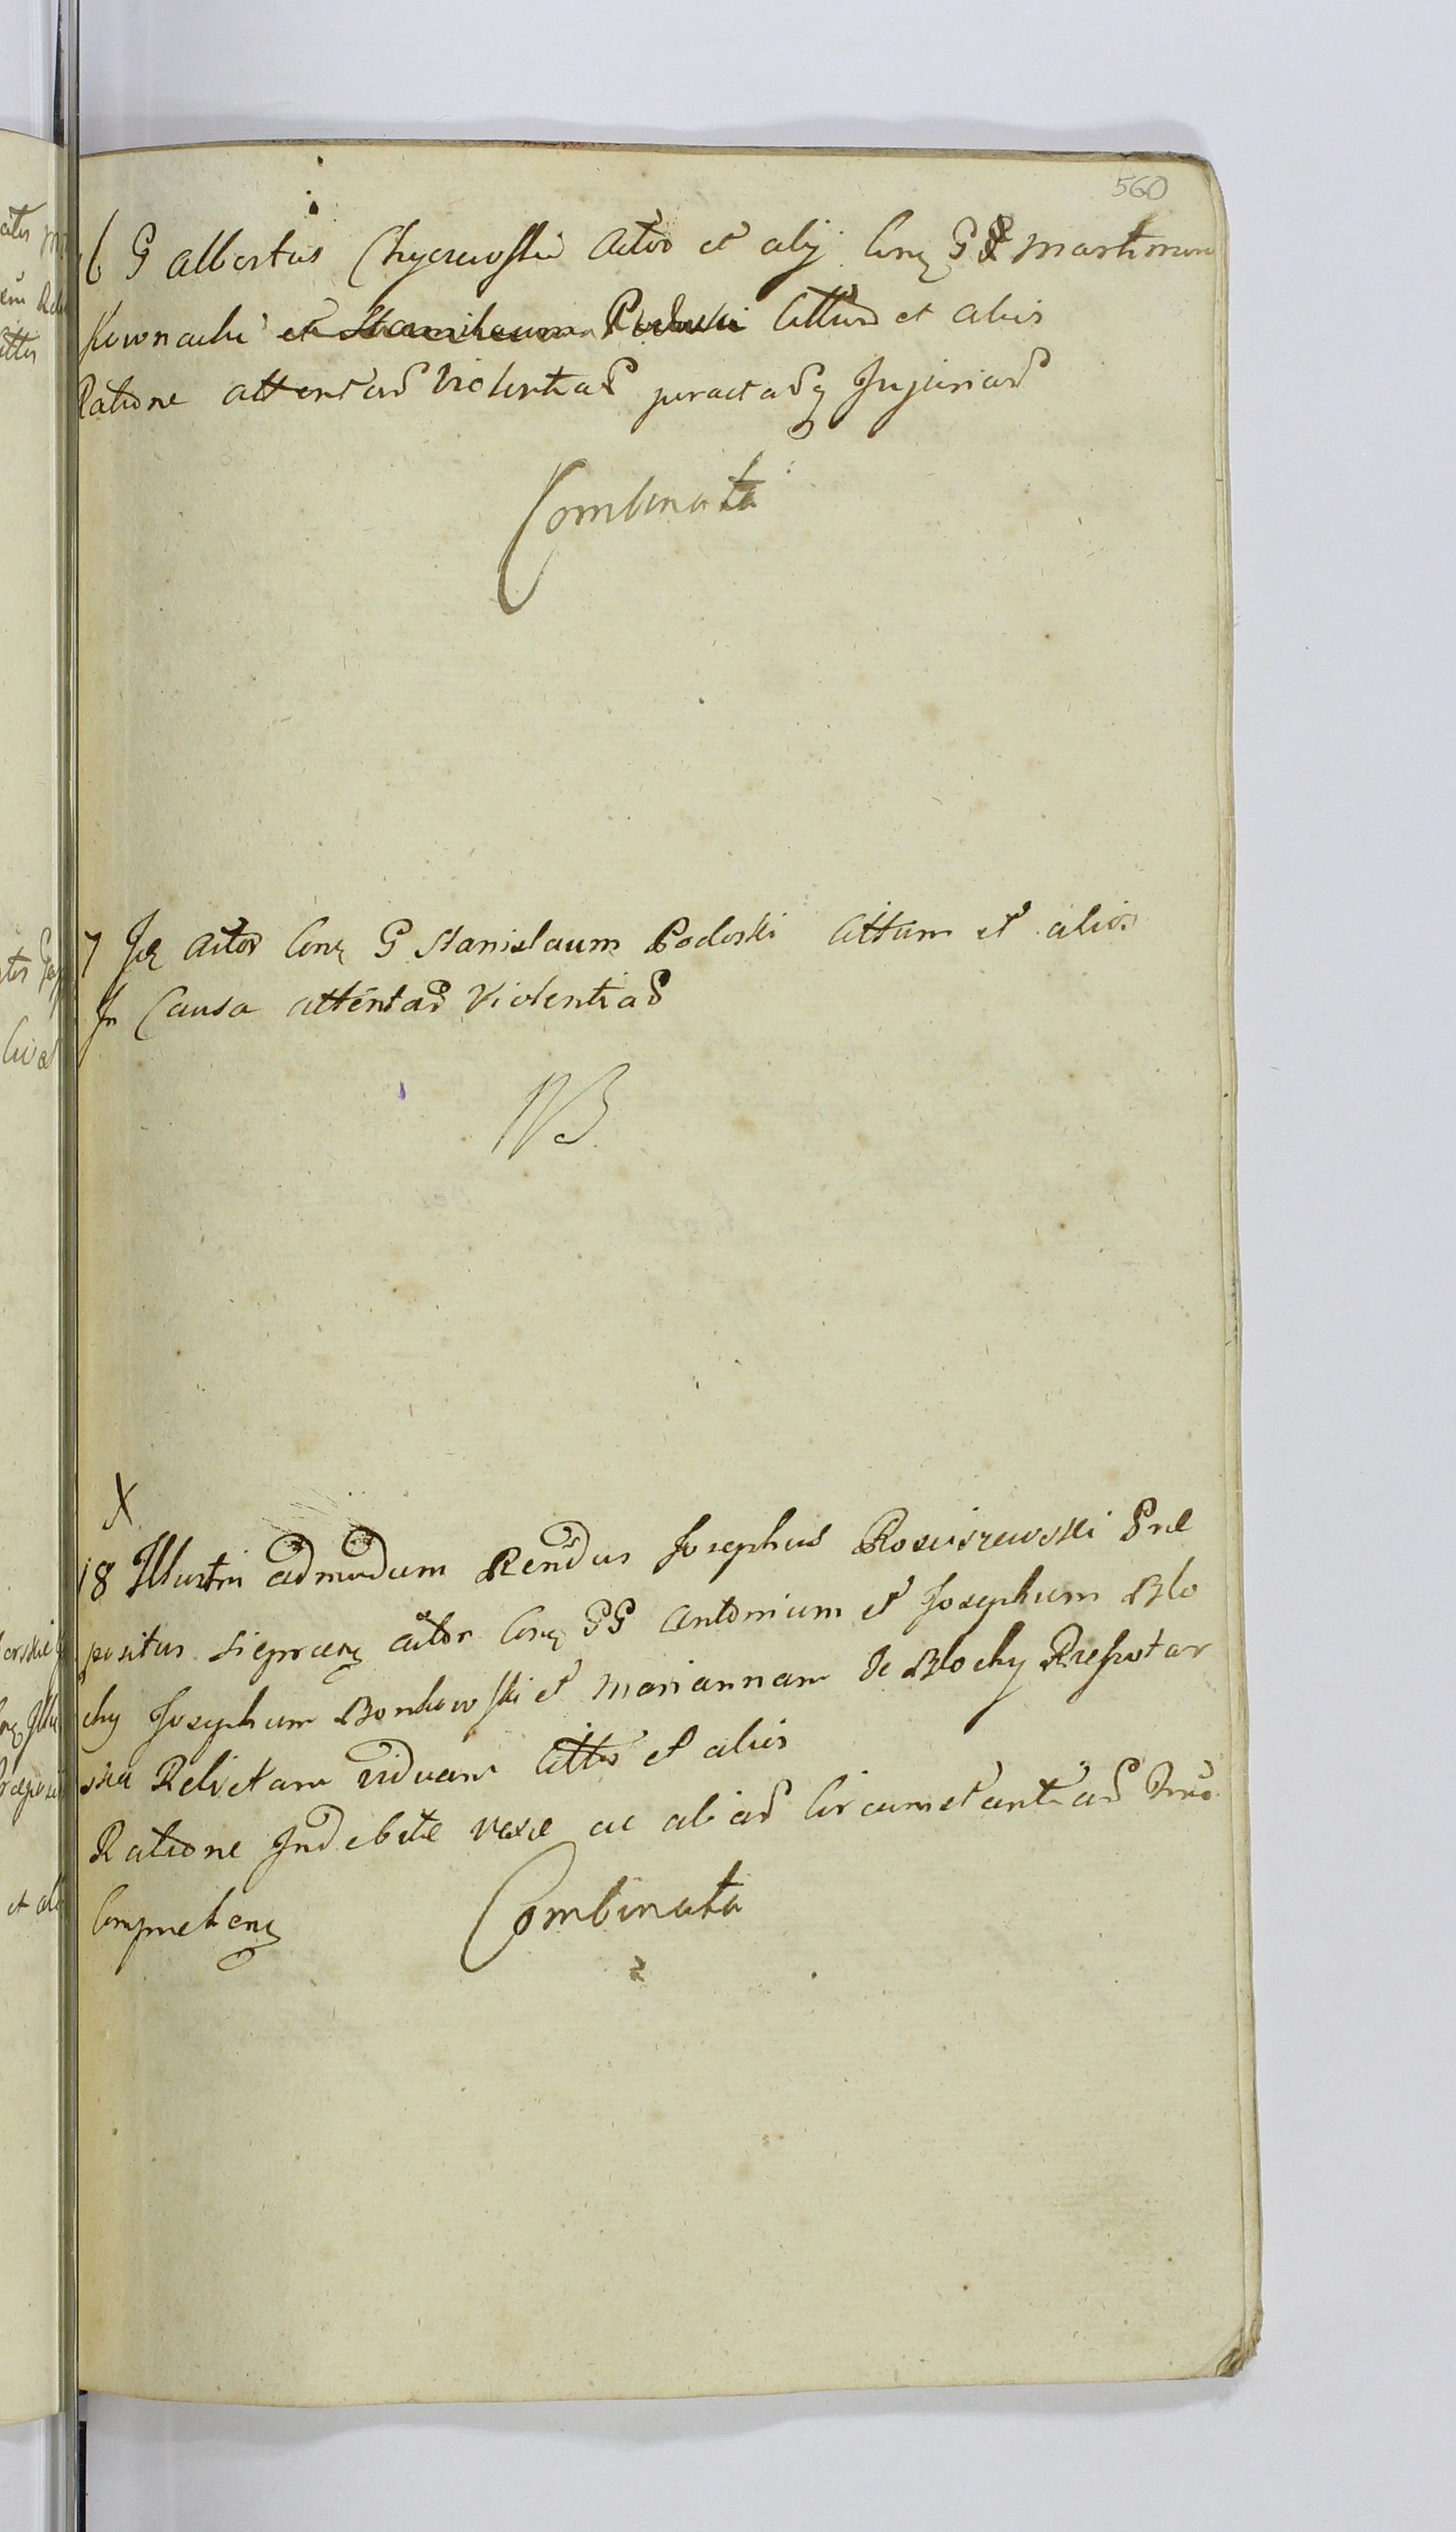 560
6 G Albertus Chyczewski Actor et alij Conq G Martinum
Kownacki et Stanislaum Podoski Cittum et alios
Ratione attentad Violentiad peractadq Injuriad
Combinata
7 Id Actor Conq G Stanislaum Podoski Cittum et alios
In Causa attentad Violentiad
NB
X
18 Illustri admodum Rendus Josephus Rosciszewski Pre
positus Sieprcenq actor Conq GG Antonium et Josephum Blo
chy Josephum Bonkowski et Mariannam de Blochy
Relictam viduam Cittos et alios
Ratione Indebite vexe ac aliad Circumstantiad
Comprehenq Combinata